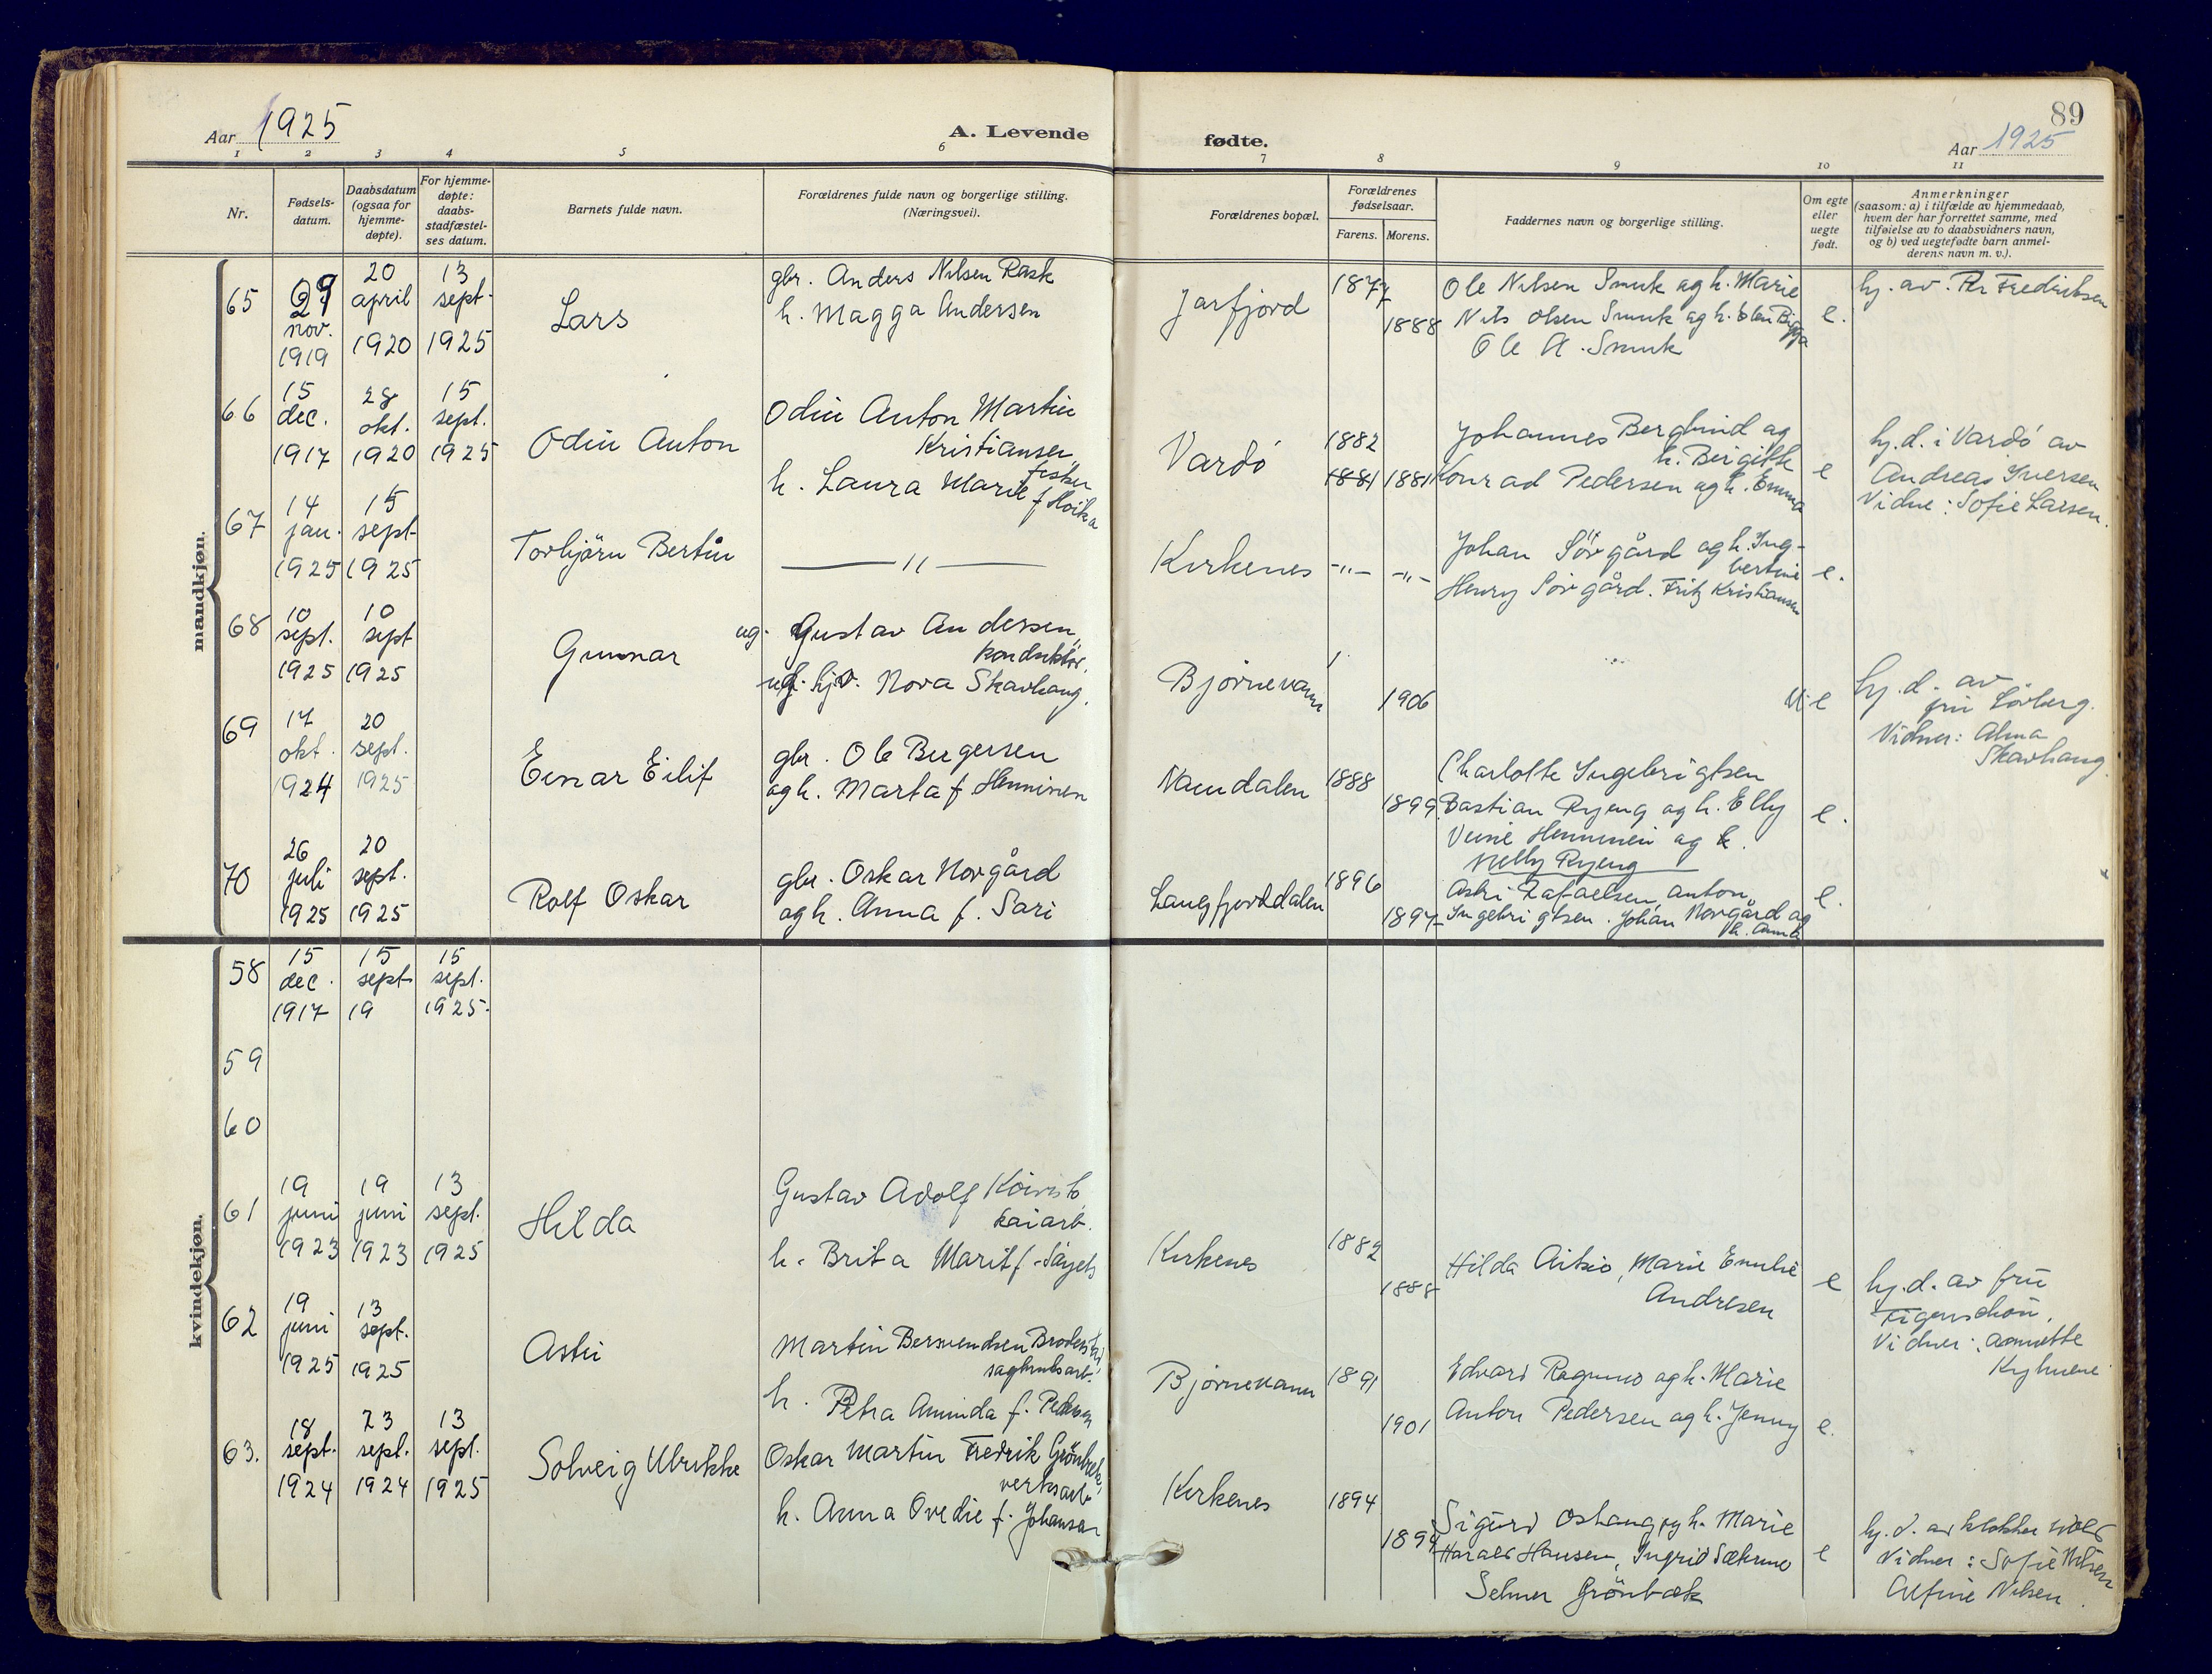 Aar 1925
A. Levende
fødte.
89
Aar 1925
1 2 3 4 5 6 7 8 9 10 11
Nr.
Fødsels-
datum.
Daabsdatum
(ogsaa for
hjemme-
døpte).
For hjemme-
døpte:
daabs-
stadfæstel-
ses datum.
Barnets fulde navn.
Forældrenes fulde navn og borgerlige stilling.
(Næringsvei).
Forældrenes bopæl.
Forældrenes
fødselsaar.
Farens. Morens.
Faddernes navn og borgerlige stilling.
Om egte
eller
uegte
født.
Anmerkninger
(saasom: a) i tilfælde av hjemmedaab,
hvem der har forrettet samme, med
tilføielse av to daabsvidners navn,
og b) ved uegtefødte barn anmel-
derens navn m. v.).
mandkjøn.
65
29
nov.
1919
20
april
1920
13
sept.
1925
Lars
gbr. Anders Nilsen Rask
h. Magga Andersen
Jarfjord
1877
1888
Ole Nilsen Smuk og h. Marie
Nils Olsen Smuk og h. Elen Bigga
Ole A. Smuk
e.
hj. av. Per Fredriksen
66
15
dec.
1917
28
okt.
1920
15
sept.
1925
Odin Anton
Odin Anton Martin
Kristiansen
fisker
h. Laura Marie f Hoika
Vardö
1882
1881 1881
Johannes Berglund og
h. Bergitte
Konrad Pedersen og h. Emma
e
hj. d. i Vardö av
Andreas Iversen
Vidne: Sofie Larsen.
67
14
jan.
1925
15
sept
1925
Torbjörn Bertin
— " —
Kirkenes
-"- -"-
Johan Sörgård og h. Ing-
bertine
Henry Sörgård. Fritz Kristiansen
e.
68
10
sept.
1925
10
sept
1925
Gunnar
ug. Gustav Andersen,
konduktör.
ug. hj. Nora Skavhaug.
Bjørnevann
1906
u e
hj. d. av
fru Lövberg.
Vidner: Alma
Skavhaug.
69
17
okt.
1924
20
sept.
1925
Einar Eilif
gbr. Ole Bergersen
og h. Marta f Henninen
Namdalen
1888
1899
Charlotte Ingebrigtsen
Bastian Ryeng og h. Elly
Henninen og h.
Nelly Ryeng
e.
70
26
juli
1925
20
sept.
1925
Rolf Oskar
gbr. Oskar Norgård
og h. Anna f. Sari
Langfjorddalen
1896
1897
Astri Rafaelsen, Anton
Ingebrigtsen. Johan Norgård og
h. Anna
e.
kvindekjøn.
58
15
dec.
1917
15
sept
19
15
sept.
1925.
59
60
61
19
juni
1923
19
juni
1923
13
sept.
1925
Hilda
Gustav Adolf Koivisto,
kaiarb.
h. Brita Marit f.
Kirkenes
1882
1888
Hilda Aitsio, Marie Emilie
Andresen
e
hj. d. av fru
Figenschou.
Vidner: Annette
62
19
juni
1925
13
sept.
1925
Astri
Martin Bersvendsen Broderstad,
sagbruksarb.
h. Petra Aminda f. Pedersen
Bjørnevann
1891
1901
Edvard Ragnmo og h. Marie
Anton Pedersen og h. Jenny
e.
63.
18
sept.
1924
23
sept.
1924
13
sept.
1925
Solveig Ulrikke
Oskar Martin Fredrik Grönbæk,
verksarb
h. Anna Ovedie f. Johansen
Kirkenes
1894
1894
Sigurd Oshaug og h. Marie
Harald Hansen, Ingrid Sætermo
Selmer Grönbæk
e
hj. d. av klokker Wold
Vidner: Sofie Nilsen
Alfine Nilsen.